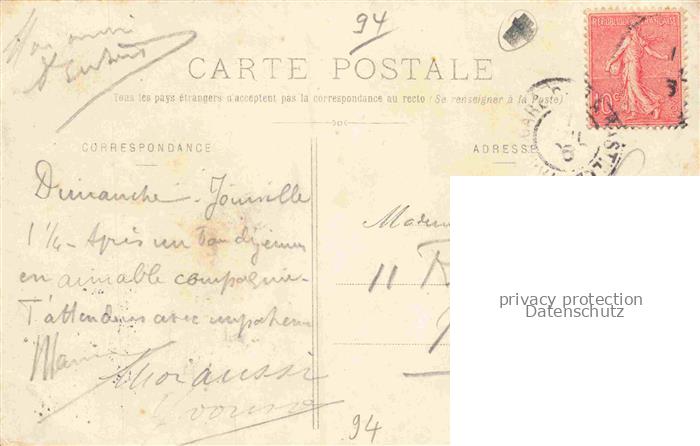 94
CARTE POSTALE
Tous les pays étrangers n'acceptent pas la correspondance au recto (Se renseigner à la Poste)
REPUBLIQUE FRANÇAISE
10c
CORRESPONDANCE
ADRESSE
Dimanche - Joinville
1 1/4 - Après un bon déjeuner
en aimable compagnie -
T'attendons avec impatience
Moi aussi
11 R
privacy protection
Datenschutz
94